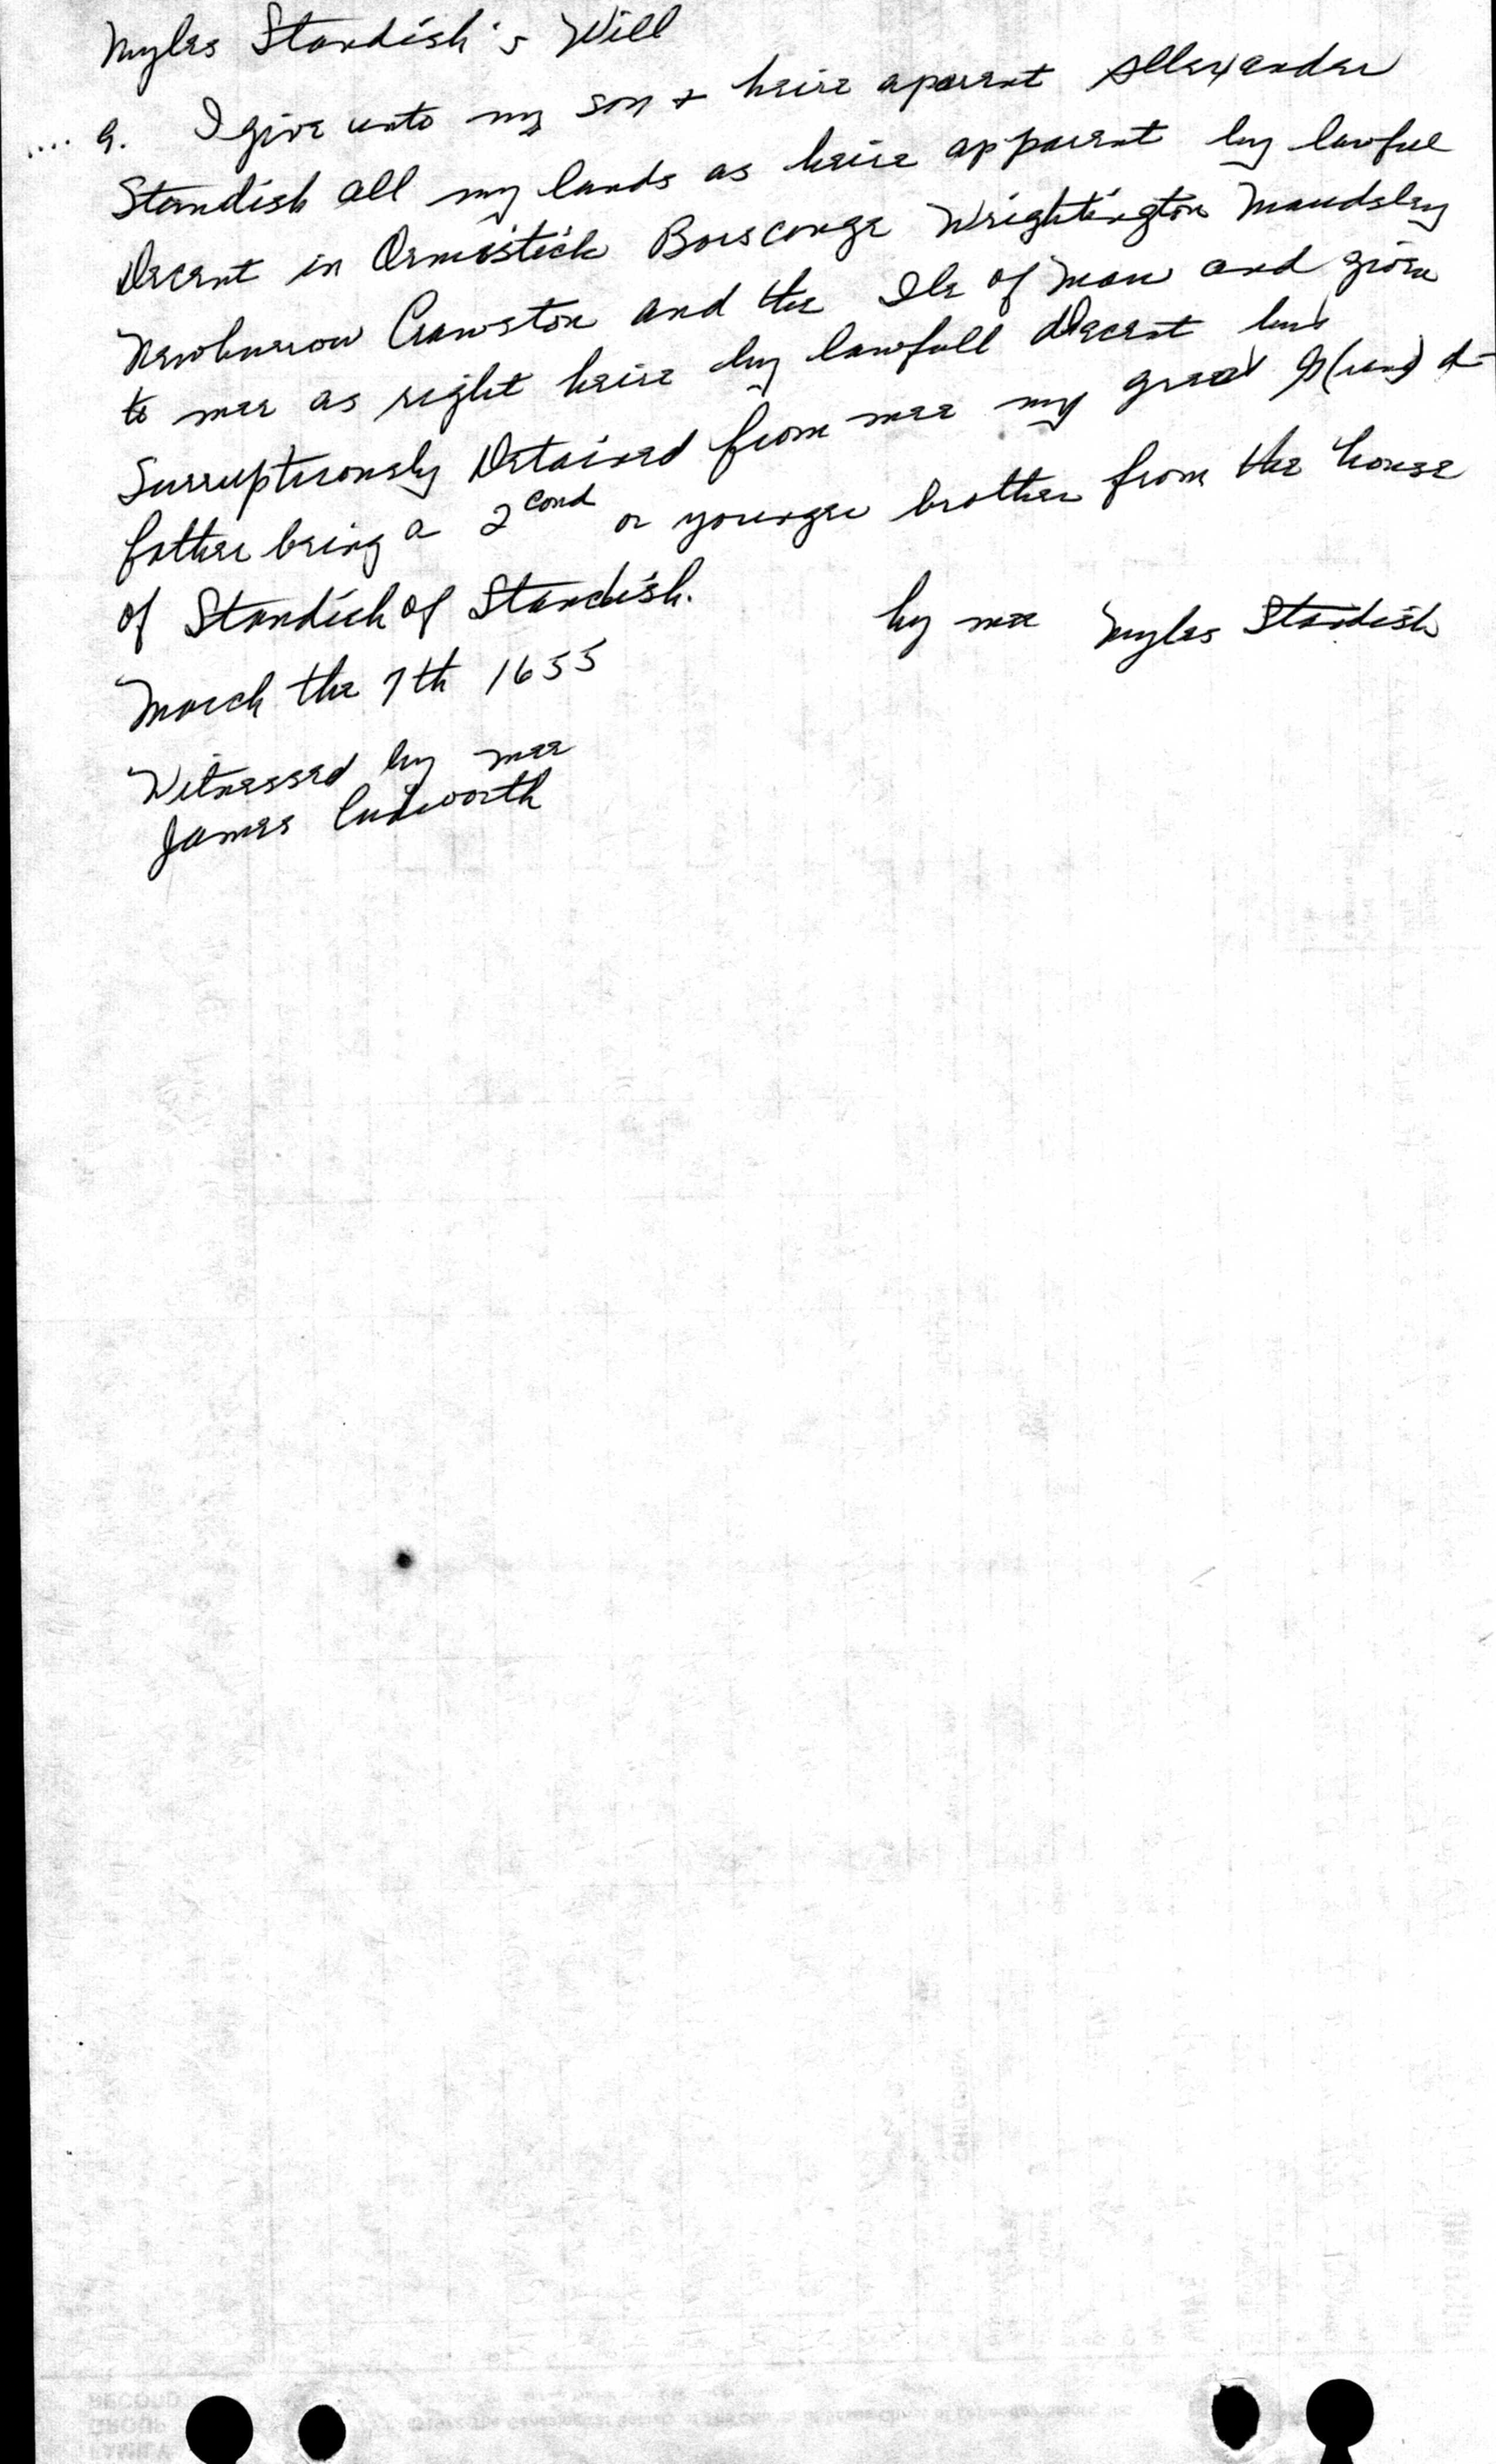 Myles Standish's Will
.... 9. I give unto my son & heire aparent Allexander
Standish all my lands as heire apparent by lawful
Decent in Ormistick Borscouge Wrightington Maudsley
Newburrow Crawston and the Ile of Man and given
to mee as right heire by lawfull decent but
Surruptuously Detained from mee my great G(rand)
father being a 2cond or younger brother from the house
of Standish of Standish.
by mee Myles Standish
March the 7th 1655
Witnessed by mee
James Cudworth